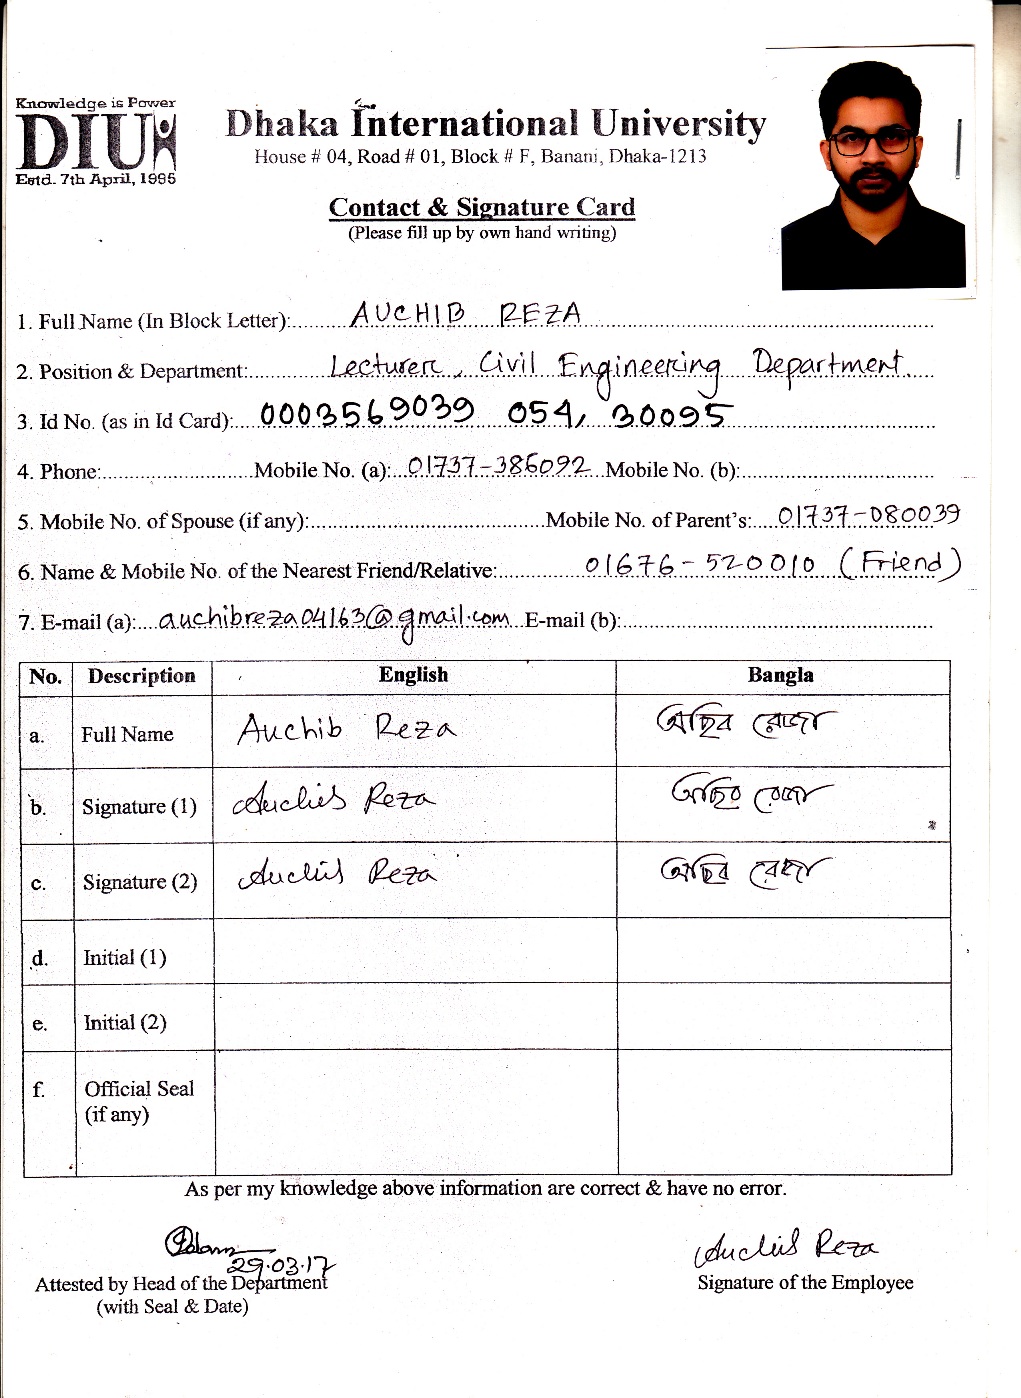 Knowledge is Power
DIU
Estd. 7th April, 1995
Dhaka International University
House # 04, Road # 01, Block # F, Banani, Dhaka-1213
Contact & Signature Card
(Please fill up by own hand writing)
1. Full Name (In Block Letter): AUCHIB REZA
2. Position & Department: Lecturer, Civil Engineering Department
3. Id No. (as in Id Card): 0003569039 054, 30095
4. Phone: Mobile No. (a): 01737-386092 Mobile No. (b):
5. Mobile No. of Spouse (if any): Mobile No. of Parent's: 01737-080039
6. Name & Mobile No. of the Nearest Friend/Relative: 01676-520010 (Friend)
7. E-mail (a): auchibreza04163@gmail.com E-mail (b):
No. Description English Bangla
a. Full Name Auchib Reza অছিব রেজা
b. Signature (1) Auchib Reza অছিব রেজা
c. Signature (2) Auchib Reza অছিব রেজা
d. Initial (1)
e. Initial (2)
f. Official Seal
(if any)
As per my knowledge above information are correct & have no error.
29.03.17
Auchib Reza
Attested by Head of the Department
(with Seal & Date)
Signature of the Employee